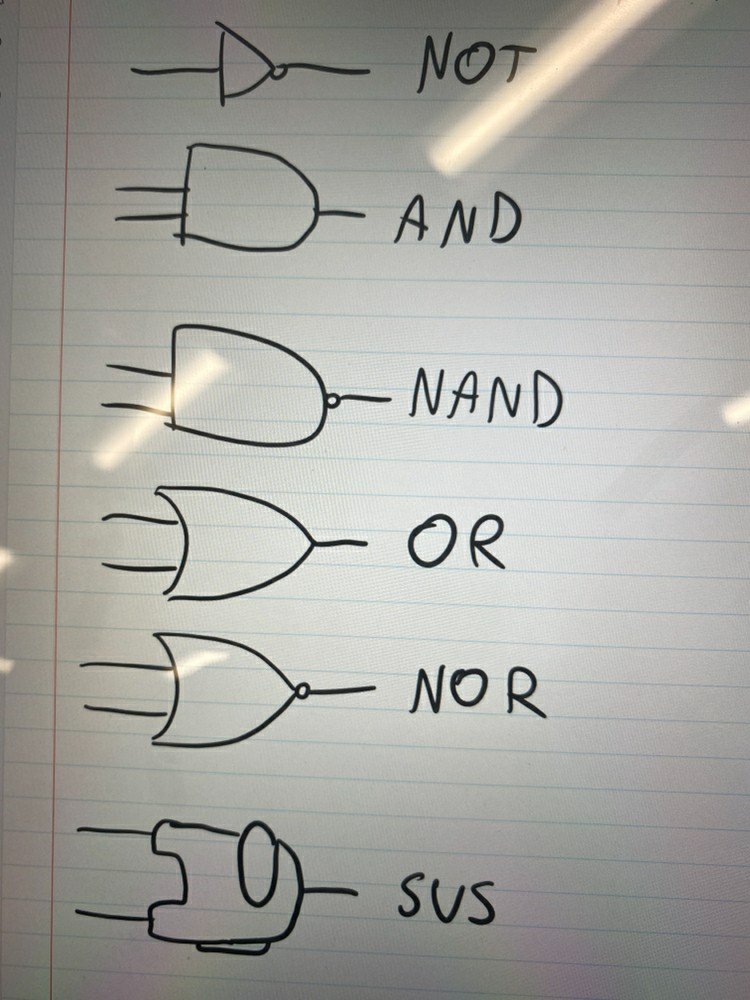 NOT
AND
NAND
OR
NOR
SUS